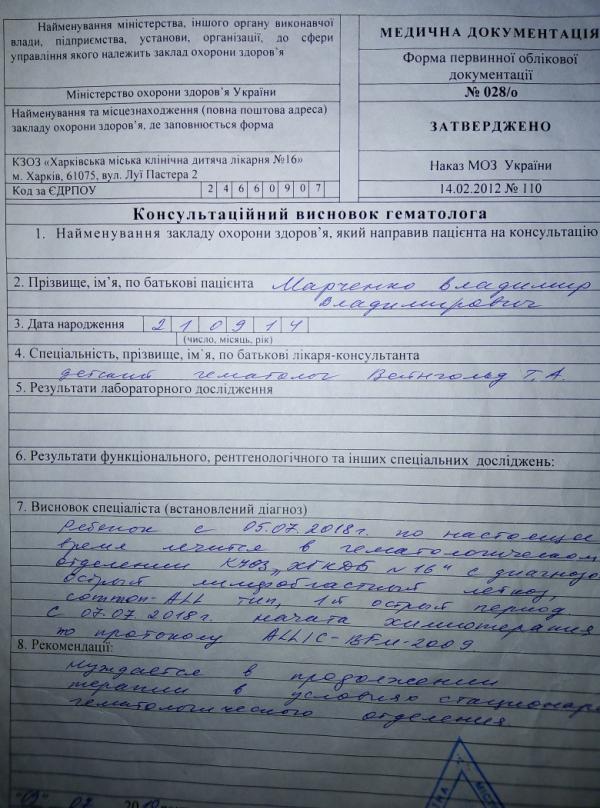 Найменування міністерства, іншого органу виконавчої
влади, підприємства, установи, організації, до сфери
управління якого належить заклад охорони здоров'я
Міністерство охорони здоров'я України
Найменування та місцезнаходження (повна поштова адреса)
закладу охорони здоров'я, де заповнюється форма
КЗОЗ «Харківська міська клінічна дитяча лікарня №16»
м. Харків, 61075, вул. Луї Пастера 2
Код за ЄДРПОУ 2 4 6 6 0 9 0 7
МЕДИЧНА ДОКУМЕНТАЦІЯ
Форма первинної облікової
документації
№ 028/о
ЗАТВЕРДЖЕНО
Наказ МОЗ України
14.02.2012 № 110
Консультаційний висновок гематолога
1. Найменування закладу охорони здоров'я, який направив пацієнта на консультацію
2. Прізвище, ім'я, по батькові пацієнта Марченко Владимир
Владимирович
3. Дата народження 2 1 0 9 1 4
(число, місяць, рік)
4. Спеціальність, прізвище, ім'я, по батькові лікаря-консультанта
детский гематолог Вейнгольд Т.А.
5. Результати лабораторного дослідження
6. Результати функціонального, рентгенологічного та інших спеціальних досліджень:
7. Висновок спеціаліста (встановлений діагноз)
Ребенок с 05.07.2018г. по настоящее
время лечится в гематологическом
отделении КЗОЗ „ХГКДБ №16" с диагнозо
острый лимфобластный лейкоз,
common-ALL тип, 1й острый период
С 07.07.2018г. начата химиотерапия
по протоколу ALL IC-BFM-2009
8. Рекомендації:
Нуждается в продолжении
терапии в условиях стационара
гематологического отделения